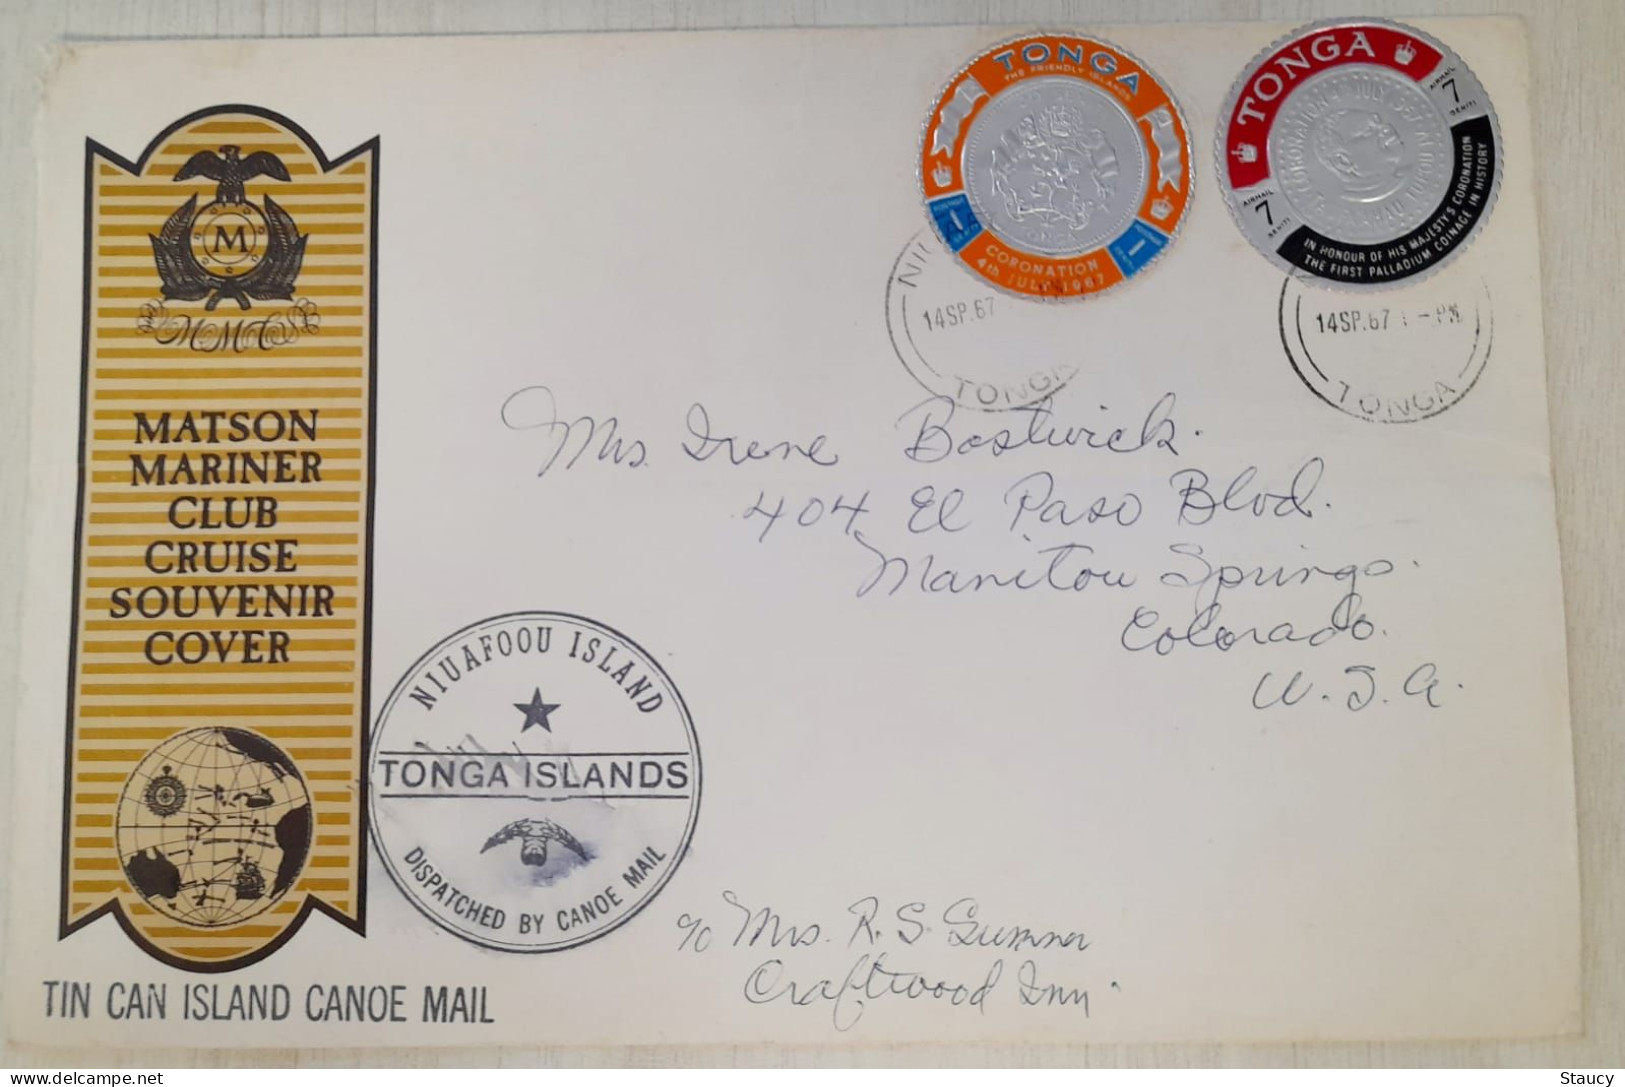 TONGA
THE FRIENDLY ISLANDS
POSTAGE
1
SENITI
POSTAGE
1
SENITI
TONGA
CORONATION
4th JULY 1967
TONGA
AIRMAIL
7
SENITI
AIRMAIL
7
SENITI
IN HONOUR OF HIS MAJESTY'S CORONATION
THE FIRST PALLADIUM COINAGE IN HISTORY
14SP.67
TONGA
14SP.67 1-PM
TONGA
M
MMCS
MATSON
MARINER
CLUB
CRUISE
SOUVENIR
COVER
Mrs. Irene Bostwick.
404 El Paso Blvd.
Manitou Springs.
Colorado.
U.S.A.
NIUAFOOU ISLAND
TONGA ISLANDS
DISPATCHED BY CANOE MAIL
c/o Mrs. R. S. Sumner
Craftwood Inn.
TIN CAN ISLAND CANOE MAIL
Staucy